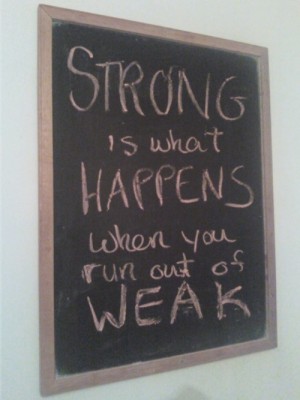 STRONG
is what
HAPPENS
when you
run out of
WEAK